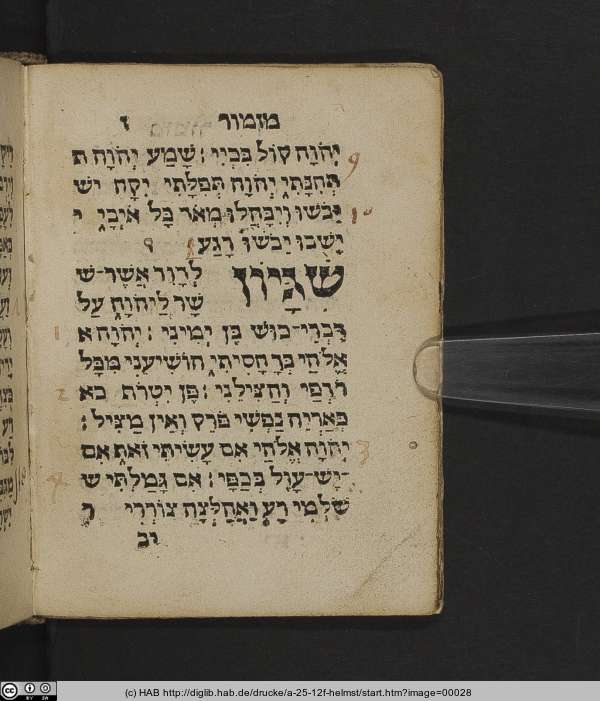 מזמור ז
יְהוָה קוֹל בִּכְיִי׃ שָׁמַע יְהוָה ת
תְּחִנָּתִי יְהוָה תְּפִלָּתִי יִקָּח יש
יֵבֹשׁוּ וְיִבָּהֲלוּ מְאֹד כָּל אֹיְבָי י
יָשֻׁבוּ יֵבֹשׁוּ רָגַע
שִׁגָּיוֹן לְדָוִד אֲשֶׁר־ש
שָׁר לַיהוָה עַל
דִּבְרֵי־כוּשׁ בֶּן יְמִינִי׃ יְהוָה א
אֱלֹהַי בְּךָ חָסִיתִי הוֹשִׁיעֵנִי מִכָּל
רֹדְפַי וְהַצִּילֵנִי׃ פֶּן יִטְרֹף כא
כְּאַרְיֵה נַפְשִׁי פֹּרֵק וְאֵין מַצִּיל׃
יְהוָה אֱלֹהַי אִם עָשִׂיתִי זֹאת אִם
־יֶשׁ־עָוֶל בְּכַפָּי׃ אִם גָּמַלְתִּי ש
שֹׁלְמִי רָע וָאֲחַלְּצָה צוֹרְרִי ר
9
10
1
2
3
4
(c) HAB http://diglib.hab.de/drucke/a-25-12f-helmst/start.htm?image=00028